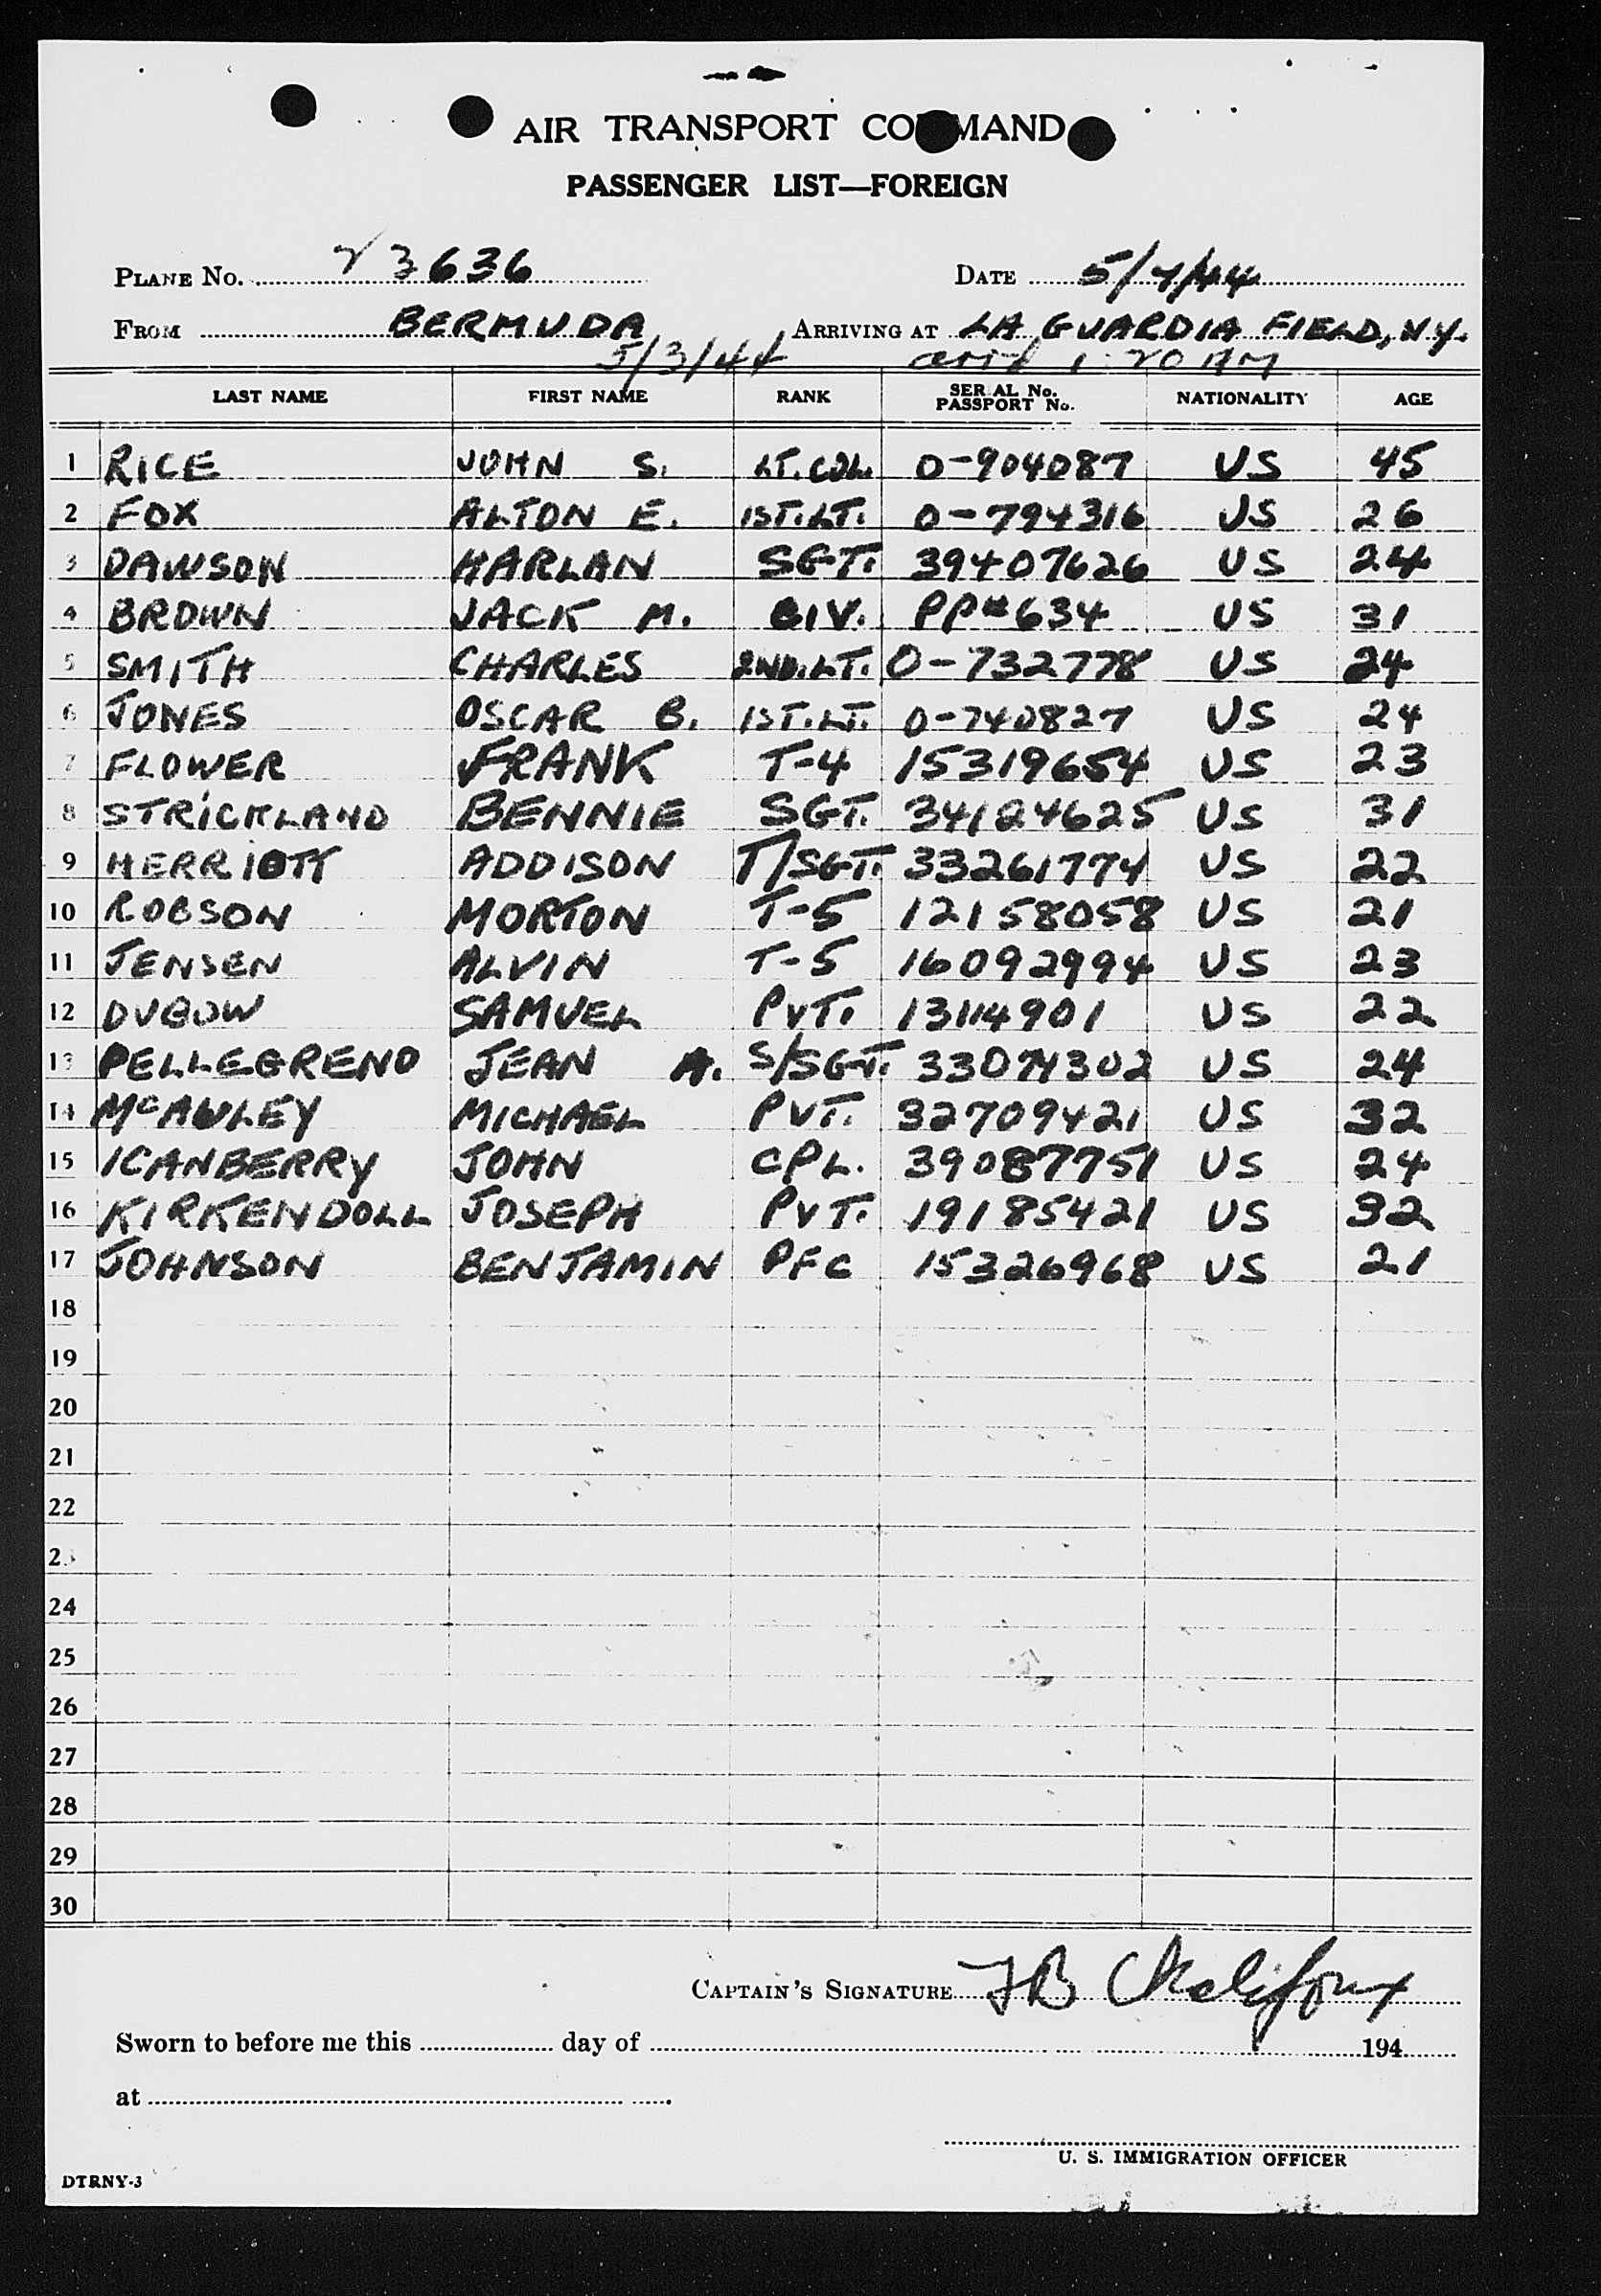 AIR TRANSPORT COMMAND
PASSENGER LIST—FOREIGN
PLANE No. 23636 DATE 5/4/44
FROM BERMUDA ARRIVING AT LA GUARDIA FIELD, N.Y.
5/3/44 1:20 AM
LAST NAME FIRST NAME RANK SERIAL No. PASSPORT No. NATIONALITY AGE
1 RICE JOHN S. LT. COL. O-904087 US 45
2 FOX ALTON E. 1ST. LT. O-794316 US 26
3 DAWSON HARLAN SGT. 39407626 US 24
4 BROWN JACK M. CIV. PP#634 US 31
5 SMITH CHARLES 2ND. LT. O-732778 US 24
6 JONES OSCAR B. 1ST. LT. O-740827 US 24
7 FLOWER FRANK T-4 15319654 US 23
8 STRICKLAND BENNIE SGT. 34124625 US 31
9 HERRIOTT ADDISON T/SGT. 33261774 US 22
10 ROBSON MORTON T-5 12158058 US 21
11 JENSEN ALVIN T-5 16092994 US 23
12 DUBOW SAMUEL PVT. 13114901 US 22
13 PELLEGRENO JEAN A. S/SGT. 33074302 US 24
14 McAULEY MICHAEL PVT. 32709421 US 32
15 ICANBERRY JOHN CPL. 39087751 US 24
16 KIRKENDOLL JOSEPH PVT. 19185421 US 32
17 JOHNSON BENJAMIN PFC 15326968 US 21
18
19
20
21
22
23
24
25
26
27
28
29
30
CAPTAIN'S SIGNATURE
Sworn to before me this day of 194
at
U. S. IMMIGRATION OFFICER
DTRNY-3